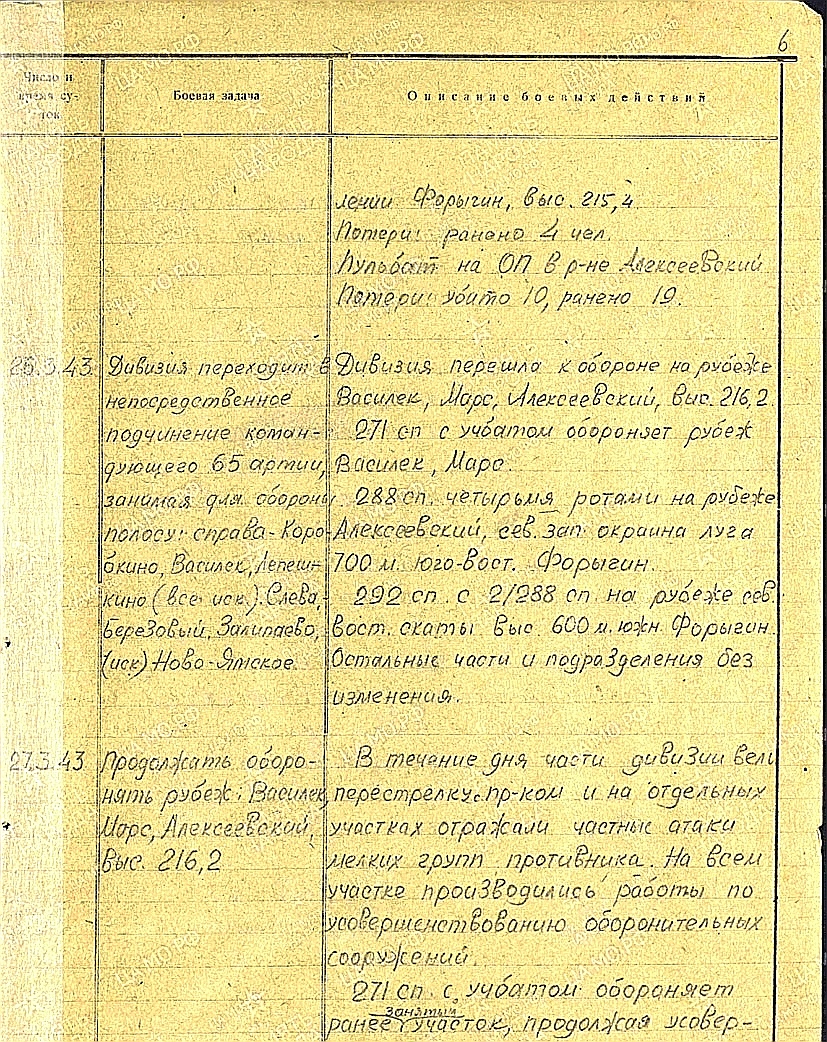 6
Число и
время су-
ток
Боевая задача
Описание боевых действий
лении Форыгин, выс. 215,4
Потери: ранено 4 чел.
Пульбат на ОП в р-не Алексеевский
Потери: убито 10, ранено 19.
26.3.43
Дивизия переходит в
непосредственное
подчинение коман-
дующего 65 артии,
занимая для обороны
полосу: справа-Коро-
бкино, Василек, Лепеш-
кино (все иск.). Слева,-
Березовый, Залипаево,
(иск) Ново-Ямское.
Дивизия перешла к обороне на рубеже
Василек, Марс, Алексеевский, выс. 216,2.
271 сп с учбатом обороняет рубеж
Василек, Марс.
288 сп. четырьмя ротами на рубеже
Алексеевский, сев. зап. окраина луга
700 м. юго-вост. Форыгин.
292 сп. с 2/288 сп на рубеже сев.
вост. скаты выс. 600 м. южн. Форыгин.
Остальные части и подразделения без
изменения.
27.3.43
Продолжать оборо-
нять рубеж: Василек,
Марс, Алексеевский,
выс. 216,2
В течение дня части дивизии вели
перестрелку с пр-ком и на отдельных
участках отражали частные атаки
мелких групп противника. На всем
участке производились работы по
усовершенствованию оборонительных
сооружений.
271 сп. с учбатом обороняет
занятый
ранее участок, продолжая усовер-